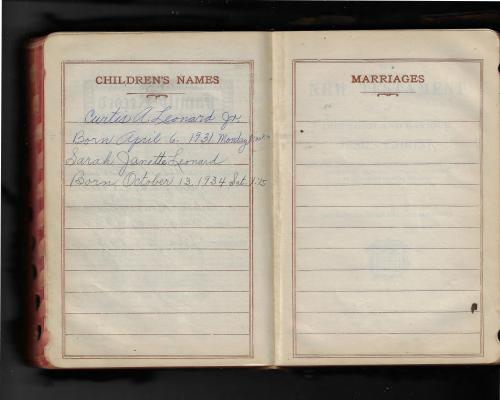 CHILDREN'S NAMES
Curtis A. Leonard Jr.
Born April 6, 1931 Monday
Sarah Janette Leonard
Born October 13, 1934 Sat.
MARRIAGES
NEW TESTAMENT